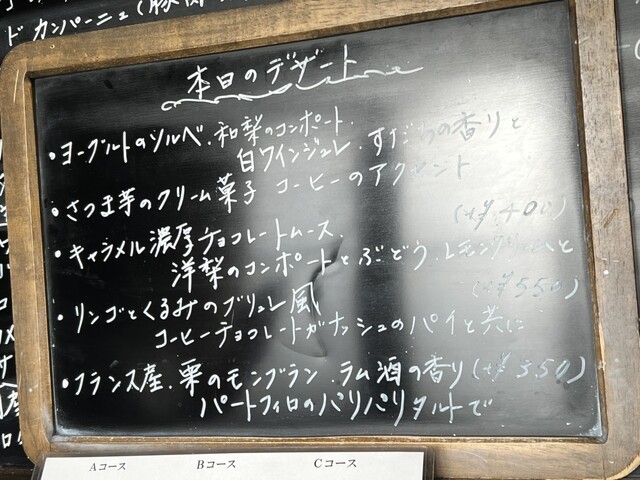 ド カンパーニュ(豚肉
本日のデザート
・ヨーグルトのソルベ.和梨のコンポート.
白ワインジュレ.すだちの香りと
・さつま芋のクリーム菓子 コーヒーのアクセント
(+¥400)
・キャラメル濃厚チョコレートムース.
洋梨のコンポートとぶどう.レモン
(+¥550)
・リンゴとくるみのブリュレ風
コーヒーチョコレートガナッシュのパイと共に
・フランス産.栗のモンブラン.ラム酒の香り(+¥350)
パートフィロのパリパリタルトで
Aコース Bコース Cコース